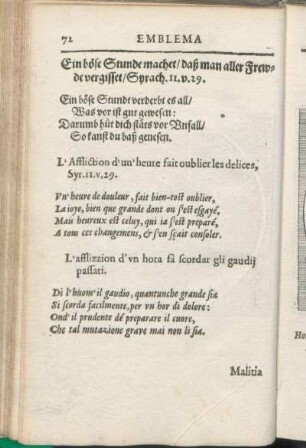 72 EMBLEMA
Ein böse Stunde machet/ daß man aller Frew-
de vergisset/ Syrach. 11.v.29.
Ein böse Stundt verderbt es all/
Was vor ist gut gewesen:
Darumb hüt dich stäts vor Vnfall/
So kanst du baß genesen.
L'Affliction d'un'heure fait oublier les delices,
Syr.11.v.29.
Vn'heure de douleur, fait bien-tost oublier,
La ioye, bien que grande dont on s'est esgayé,
Mais heureux est celuy, qui ia s'est preparé,
A tous ces changemens, & s'en sçait consoler.
L'afflizzion d'vn hora fà scordar gli gaudij
passati.
Di l'huom'il gaudio, quantunche grande sia
Si scorda facilmente, per vn hor di dolore:
Ond'il prudente dé preparare il cuore,
Che tal mutazione grave mai non li sia.
Malitia